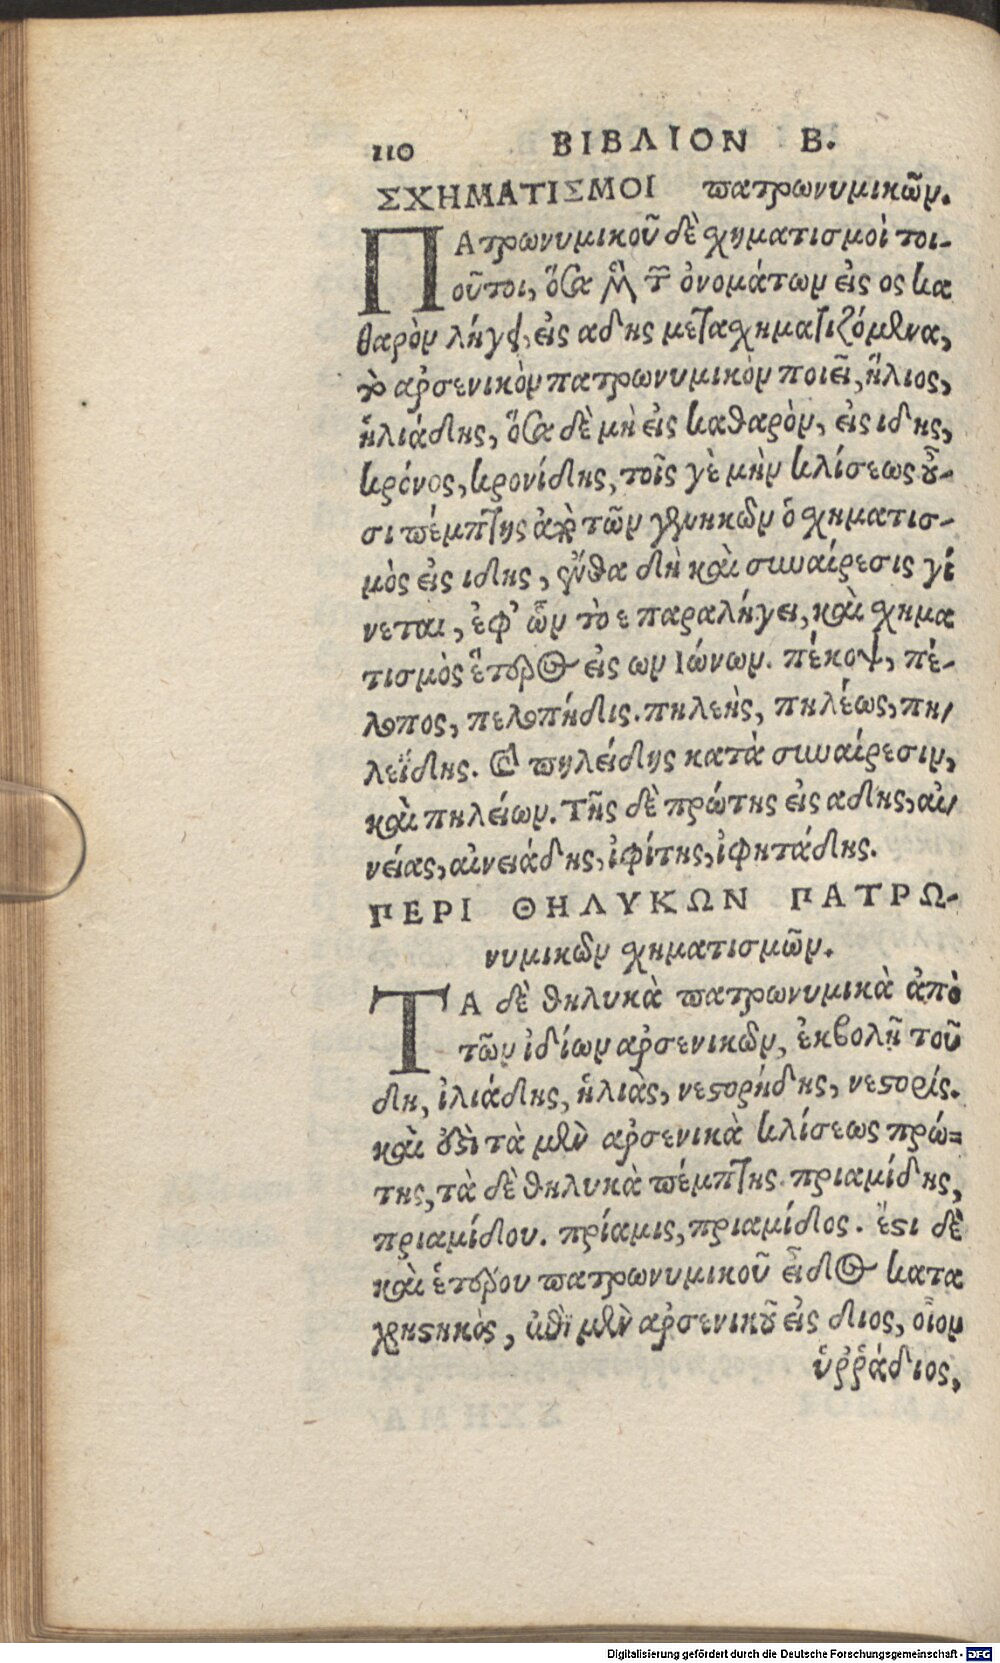 110 ΒΙΒΛΙΟΝ Β.
ΣΧΗΜΑΤΙΣΜΟΙ πατρωνυμικῶν.
ΠΑτρωνυμικοῦ δὲ σχηματισμοὶ τοι-
οῦτοι, ὅσα μὲν τῶν ὀνομάτων εἰς ος κα
θαρὸν λήγει, εἰς αδης μετασχηματιζόμενα,
τὸ ἀρσενικὸν πατρωνυμικὸν ποιεῖ, ἥλιος,
ἡλιάδης, ὅσα δὲ μὴ εἰς καθαρὸν, εἰς ιδης,
κρόνος, κρονίδης, τοῖς γὲ μὴν κλίσεως οὖ-
σι πέμπτης ἀπὸ τῶν γενικῶν ὁ σχηματισ-
μὸς εἰς ιδης, ἔνθα δὴ καὶ συναίρεσις γί
νεται, ἐφ’ ὧν τὸ ε παραλήγει, καὶ σχημα
τισμὸς ἕτερος εἰς ων Ιώνων. πέκοψ, πέ-
λοπος, πελοπήδις. πηλεὴς, πηλέως, πη/
λεΐδης. καὶ πηλείδης κατὰ συναίρεσιν,
καὶ πηλείων. Τῆς δὲ πρώτης εἰς αδης, αἰ/
νείας, αἰνειάδης, ἰφίτης, ἰφητάδης.
ΠΕΡΙ ΘΗΛΥΚΩΝ ΠΑΤΡΩ-
νυμικῶν σχηματισμῶν.
ΤΑ δὲ θηλυκὰ πατρωνυμικὰ ἀπὸ
τῶν ἰδίων ἀρσενικῶν, ἐκβολῇ τοῦ
δη, ἰλιάδης, ἡλιὰς, νεϛορήδης, νεϛορίς.
καὶ ἔϛι τὰ μὲν ἀρσενικὰ κλίσεως πρώ=
της, τὰ δὲ θηλυκὰ πέμπτης. πριαμίδης,
πριαμίδου. πρίαμις, πριαμίδος. ἔϛι δὲ
καὶ ἑτέρου πατρωνυμικοῦ εἶδος κατα
χρηϛηκὸς, ἐπὶ μὲν ἀρσενικοῦ εἰς διος, οἷον
ὑῤῥάδιος,
Digitalisierung gefördert durch die Deutsche Forschungsgemeinschaft - DFG